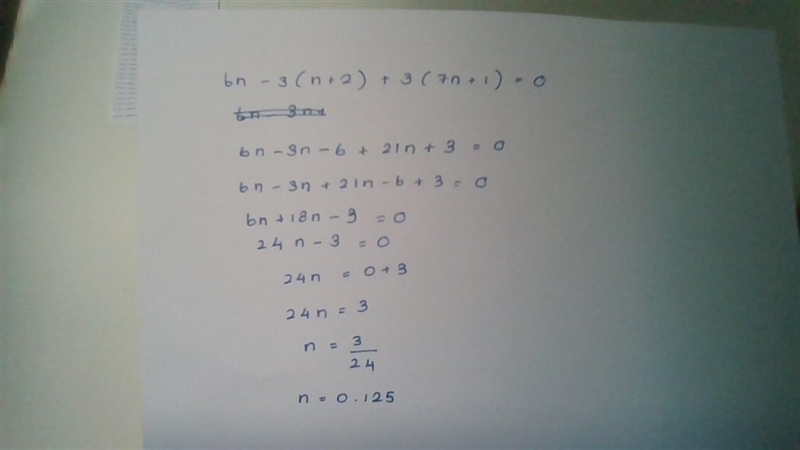 6n - 3(n+2) + 3(7n+1) = 0
6n - 3n - 6 + 21n + 3 = 0
6n - 3n + 21n - 6 + 3 = 0
6n + 18n - 3 = 0
24n - 3 = 0
24n = 0+3
24n = 3
n = 3/24
n = 0.125